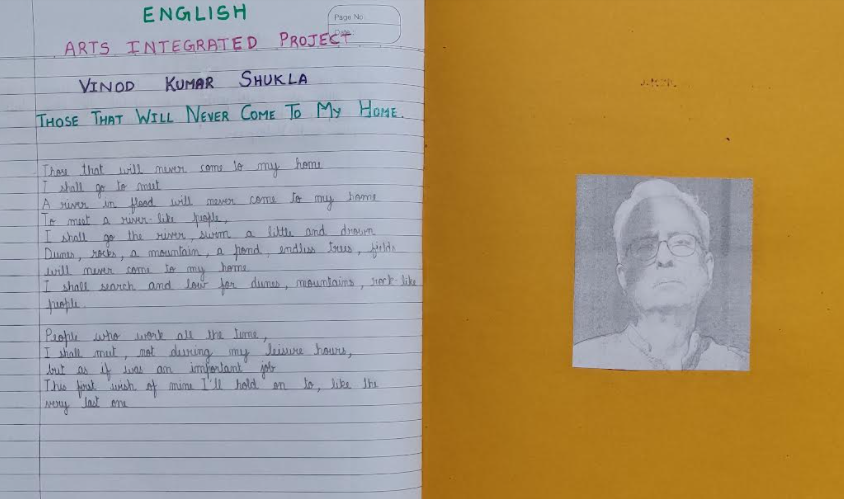 ENGLISH
Page No.
ARTS INTEGRATED PROJECT
VINOD KUMAR SHUKLA
THOSE THAT WILL NEVER COME TO MY HOME.
Those that will never come to my home
I shall go to meet
A river in flood will never come to my home
To meet a river-like people,
I shall go the river, swom a little and drown
Dunes, rocks, a mountain, a pond, endless trees, fields
will never come to my home.
I shall search and low for dunes, mountains, rock-like
people.
People who work all the time,
I shall meet, not during my leisure hours,
but as if was an important job
This first wish of mine I'll hold on to, like the
very last one